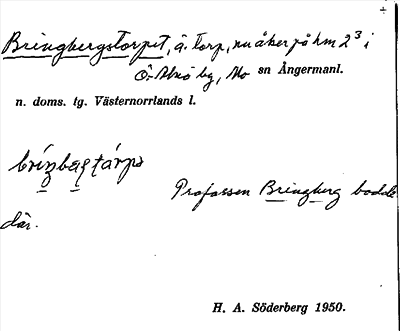 Bringbergstorpet, å. Torp, nu åker på hm 2³ i
Ö. Alnö by, Mo sn Ångermanl.
n. doms. tg. Västernorrlands l.
Profossen Bringberg bodde
där.
H. A. Söderberg 1950.